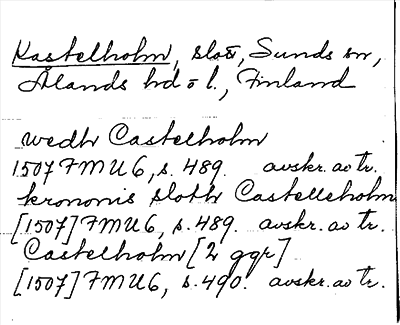 Kastelholm, slott, Sunds sn,
Ålands hd o l., Finland
wedh Castelholm
1507 FMU 6, s. 489. avskr. av tr.
krononis sloth Castelleholm
[1507] FMU 6, s. 489. avskr. av tr.
Castelholm [2 ggr]
[1507] FMU 6, s. 490. avskr. av tr.